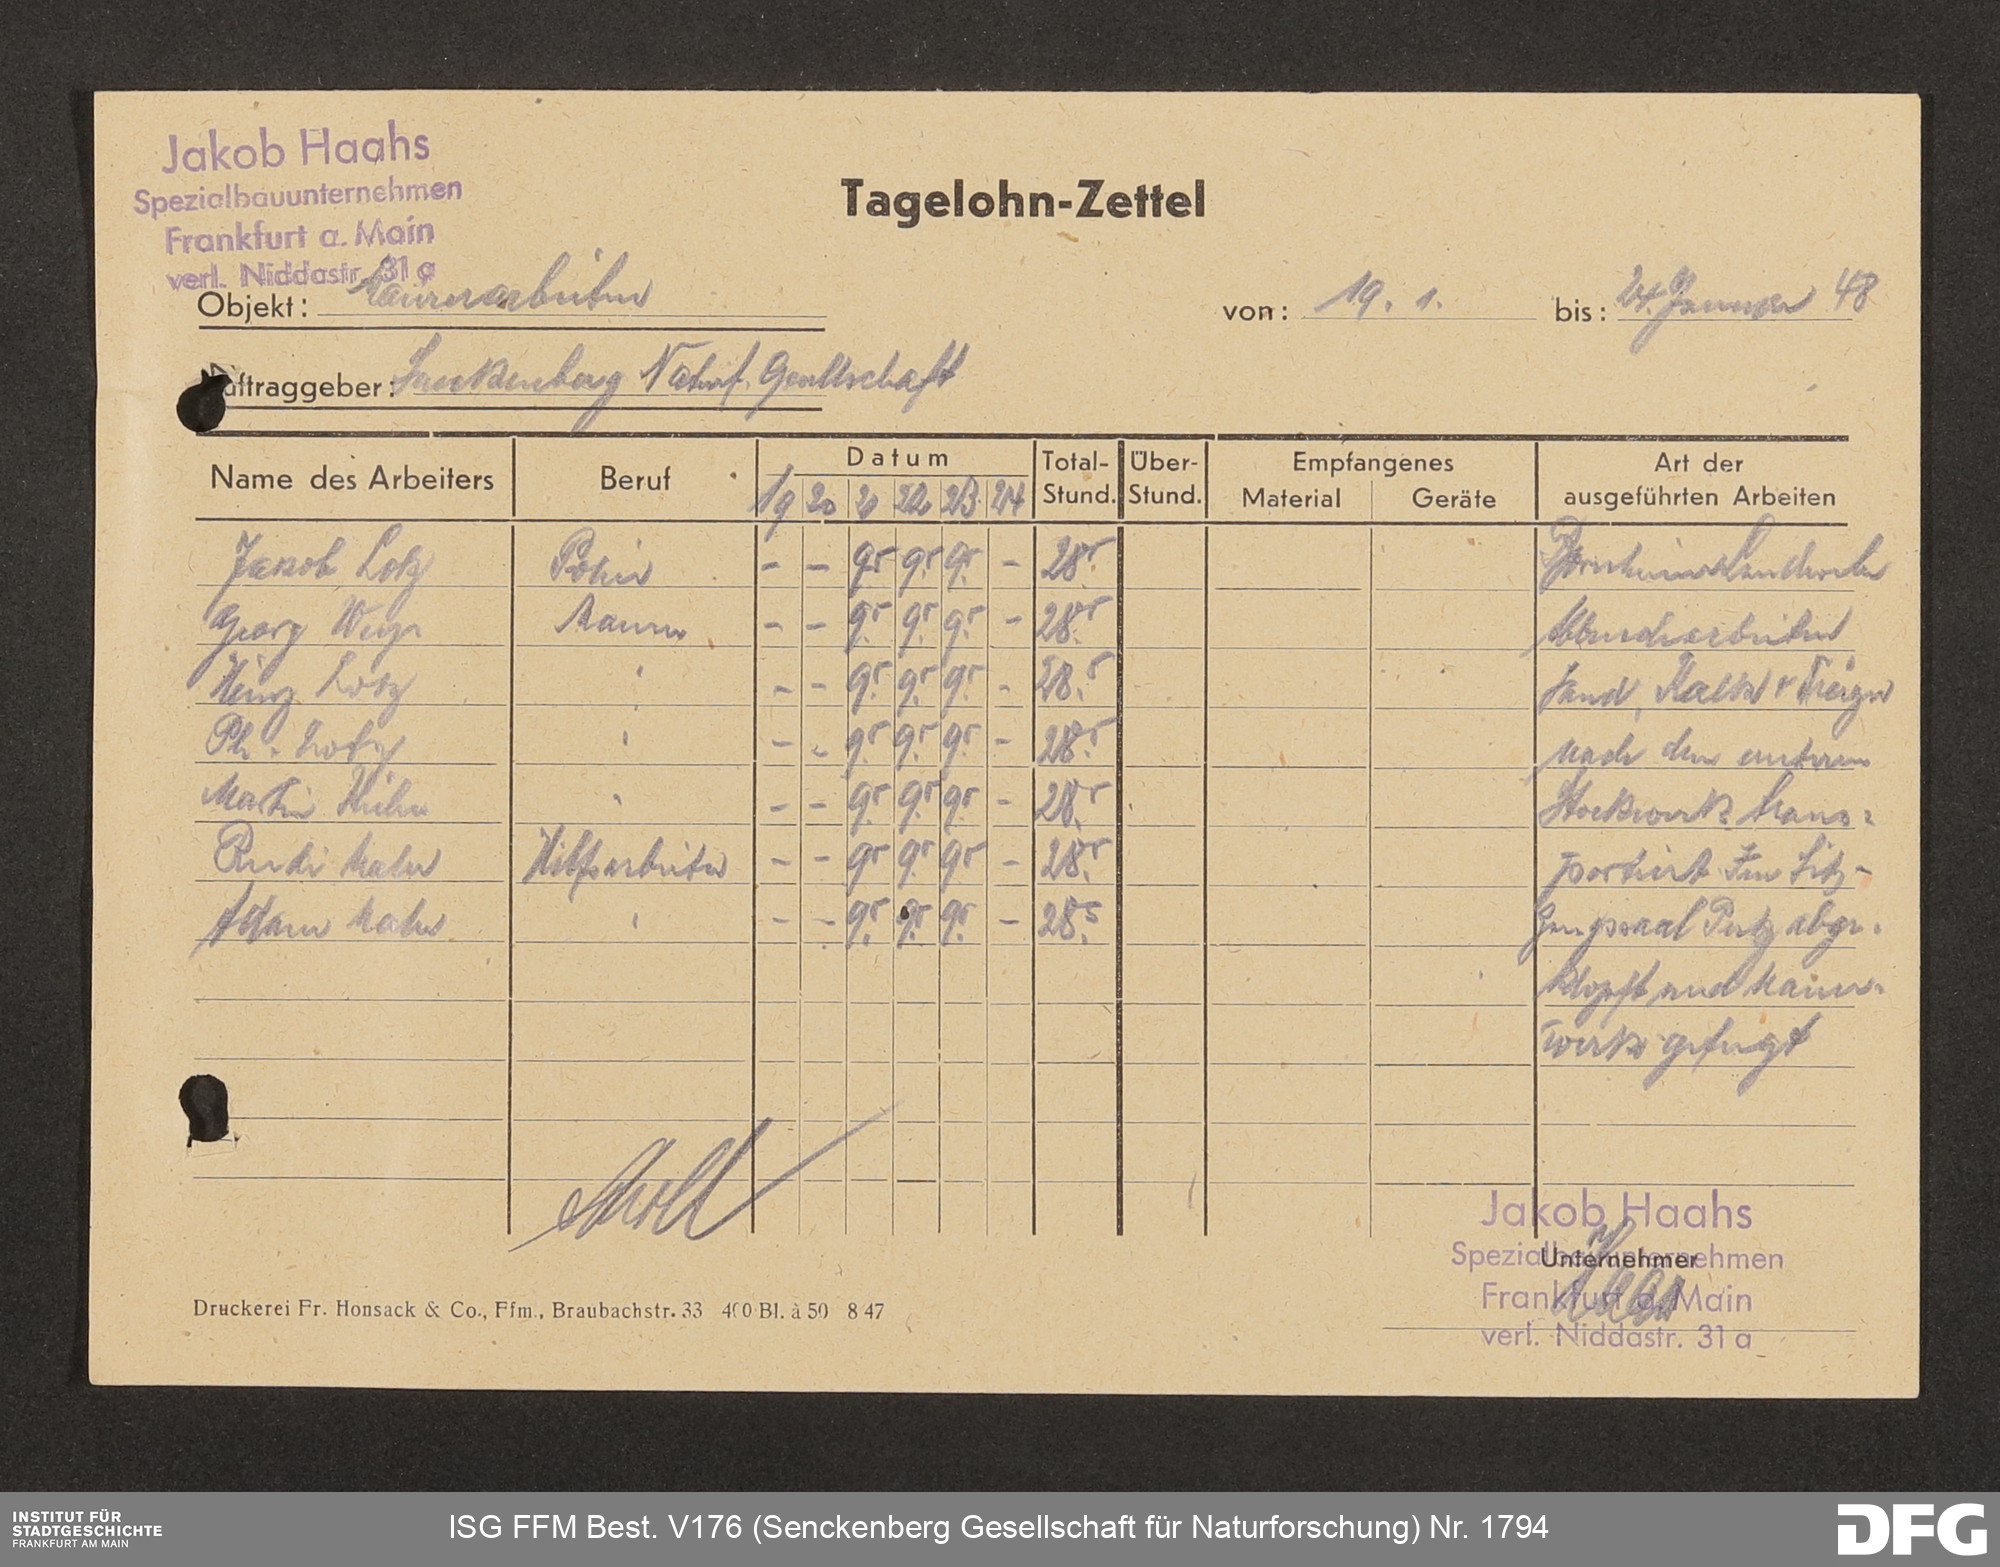 Jakob Haahs
Spezialbauunternehmen
Frankfurt a. Main
verl. Niddastr. 31 a
Tagelohn-Zettel
Objekt: Maurerarbeiten von: 19. 1. bis: 24. Januar 48
Auftraggeber: Senckenberg Naturf. Gesellschaft
Name des Arbeiters Beruf Datum Total-Stund. Über-Stund. Empfangenes Art der
19 20 21 22 23 24 Material Geräte ausgeführten Arbeiten
Jakob Lotz Polier - - 9.5 9.5 9.5 - 28.5
Georg Maurer - - 9.5 9.5 9.5 - 28.5 Abbrucharbeiten
Heinz Lotz " - - 9.5 9.5 9.5 - 28.5 Sand, Kalk
Ph. Lotz " - - 9.5 9.5 9.5 - 28.5 nach den unteren
Martin " - - 9.5 9.5 9.5 - 28.5 Stockwerk trans-
Rudi Hilfsarbeiter - - 9.5 9.5 9.5 - 28.5 portiert Im Sit-
Adam " - - 9.5 9.5 9.5 - 28.5 zungssaal Putz abge-
klopft und Mauer-
werk gefugt
Jakob Haahs
Spezialbauunternehmen
Unternehmer
Frankfurt a. Main
verl. Niddastr. 31 a
Druckerei Fr. Honsack & Co., Ffm., Braubachstr. 33 400 Bl. à 50 8 47
INSTITUT FÜR
STADTGESCHICHTE
FRANKFURT AM MAIN
ISG FFM Best. V176 (Senckenberg Gesellschaft für Naturforschung) Nr. 1794
DFG